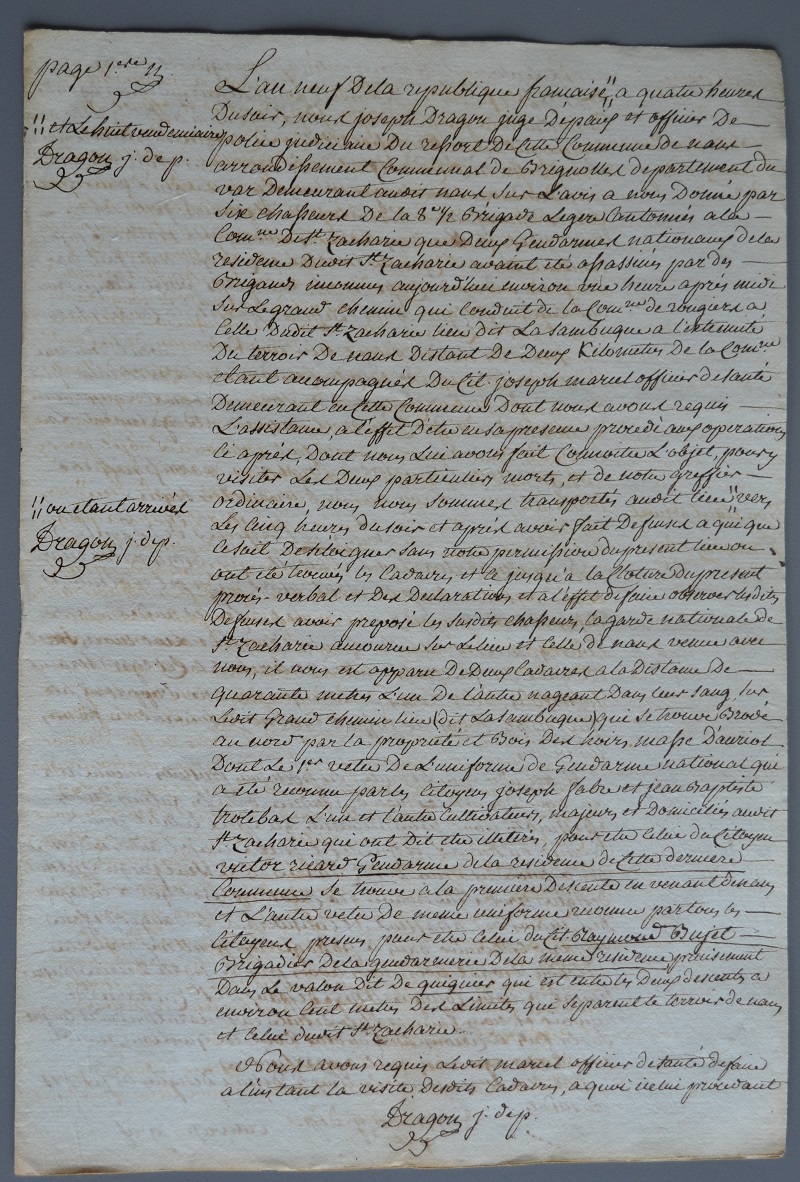 page 1.ere
L'an neuf De la republique francaise,'' a quatre heures
Du soir, nous joseph Dragon juge De paix et officier De
'' et Le huit vendemiaire
Dragon j. de p.
police judiciaire Du ressort De Cette Commune de nans
arrondissement Communal de Brignolles departement du
var Demeurant audit nans sur L'avis a nous Donné par
six chasseurs De la 8e 1/2 Brigade Legere Cantonnés a la
Comne De St. Zacharie que Deux Gendarmes nationaux de la
residence Dudit St. Zacharie avaient été assassinés par des
Brigands inconnus aujourd'hui environ une heure après midi
sur Le grand chemin qui Conduit de la Comne de rougiers a
Celle Dudit St. Zacharie lieu dit La sambuque a l'extremité
Du terroir De nans Distant de Deux Kilometres De la Comne
etant acompagnés Du Cit. joseph maruel officier de santé
Demeurant en Cette Commune Dont nous avons requis
L'assistance, a l'effet D'etre en sa presence procedé aux operations
Ci après, Dont nous Lui avons fait Connoitre L'objet, pour y
visiter Les Deux particuliers morts, et de notre greffier
ordinaire, nous nous sommes transportés audit lieu '' vers
'' ou etant arrivés
Dragon j. de p.
Les cinq heures du soir et après avoir fait Defenses a qui que
Ce soit De s'éloigner sans notre permission du present lieu ou
ont été trouvés les Cadavres et Ce jusqu'a la Cloture du present
procés-verbal et Des Declarations, et a l'effet de faire observer lesdites
Defenses avoir preposé les susdits chasseurs, la garde nationale de
St. Zacharie accourue sur Le lieu et Celle de nans venue avec
nous, il nous est apparu De Deux Cadavres a la Distance De
quarante metres L'un De l'autre nageant Dans leur sang, sur
Ledit Grand chemin lieu (dit La sambuque) que se trouve Brodé
au nord par la propriété et Bois Des hoirs masse D'auriol
Dont Le 1er vetu De L'uniforme de Gendarme national qui
a été reconnu par les Citoyens joseph fabre et jean Baptiste
trotebas L'un et l'autre Cultivateurs, majeurs et Domiciliés audit
St. Zacharie qui ont Dit etre illetrés, pour etre Celui du Citoyen
victor ricard Gendarme de la residence de Cette derniere
Commune se trouve a la premiere Descente en venant de nans
et L'autre vetu De meme uniforme reconnu par tous les
Citoyens presens pour etre Celui du Cit Raymond Bujet
Brigadier De la gendarmerie De la meme residence precisement
Dans Le valon Dit De quiquier qui est entre les Deux descentes a
environ Cent metres Des Limites qui separent le terroir de nans
et Celui dudit St. Zacharie.
Nous avons requis Ledit maruel officier de santé de faire
a l'instant la visite Desdits Cadavres, a quoi icelui procedant
Dragon j. de p.